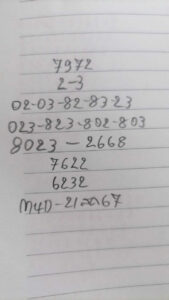 7972
2-3
02-03-82-83-23
023-823-802-803
8023-2668
7622
6232